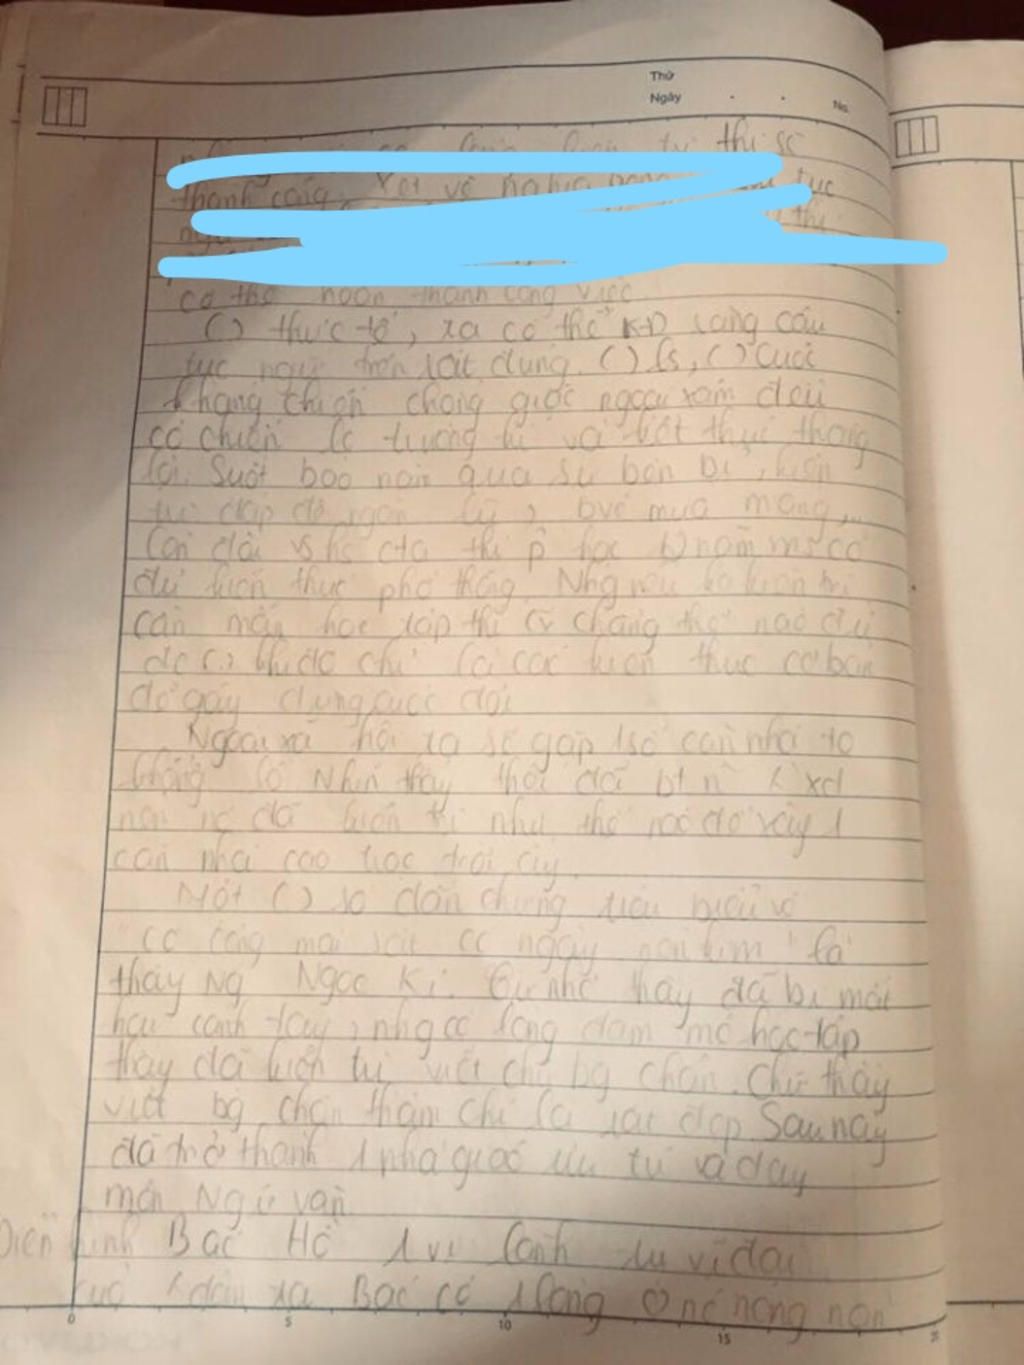 Thứ
Ngày No.
thì sẽ
thành công. Xét về nghĩa tục
thì
có thể hoàn thành công việc.
() thực tế, ta có thể KĐ rằng câu
tục ngữ trên rất đúng. () ls, () cuộc
kháng chiến chống giặc ngoại xâm đều
có chiến lc trường kì và kết thúc thắng
lợi. Suốt bao năm qua sự bền bỉ, kiên
trì đắp đê ngăn lũ, bvệ mùa màng,...
Còn đối vs hs cta thì p học 12 năm ms có
đủ kiến thức phổ thông. Nhg nếu ko kiên trì
cần mẫn học tập thì cx chẳng thể nào đủ
đc () khi đó chỉ là các kiến thức cơ bản
để gây dựng cuộc đời
Ngoài xã hội ta sẽ gặp 1 số căn nhà to
khổng lồ Nhìn thấy thôi đã bt n xd
nên nó đã kiên trì như thế nào để xây 1
căn nhà cao trọc trời ấy.
Một () số dẫn chứng tiêu biểu về
"có công mài sắt có ngày nên kim" là
thầy Ng Ngọc Kí. Từ nhỏ thầy đã bị mất
hai cánh tay, nhg có lòng đam mê học tập
thầy đã kiên trì viết chữ bg chân. Chữ thầy
viết bg chân thậm chí là rất đẹp. Sau này
đã trở thành 1 nhà giáo ưu tú và dạy
môn Ngữ văn
Điển hình Bác Hồ 1 vị lãnh tụ vĩ đại
của dân ta Bác có 1 lòng nc nồng nàn
0 5 10 15